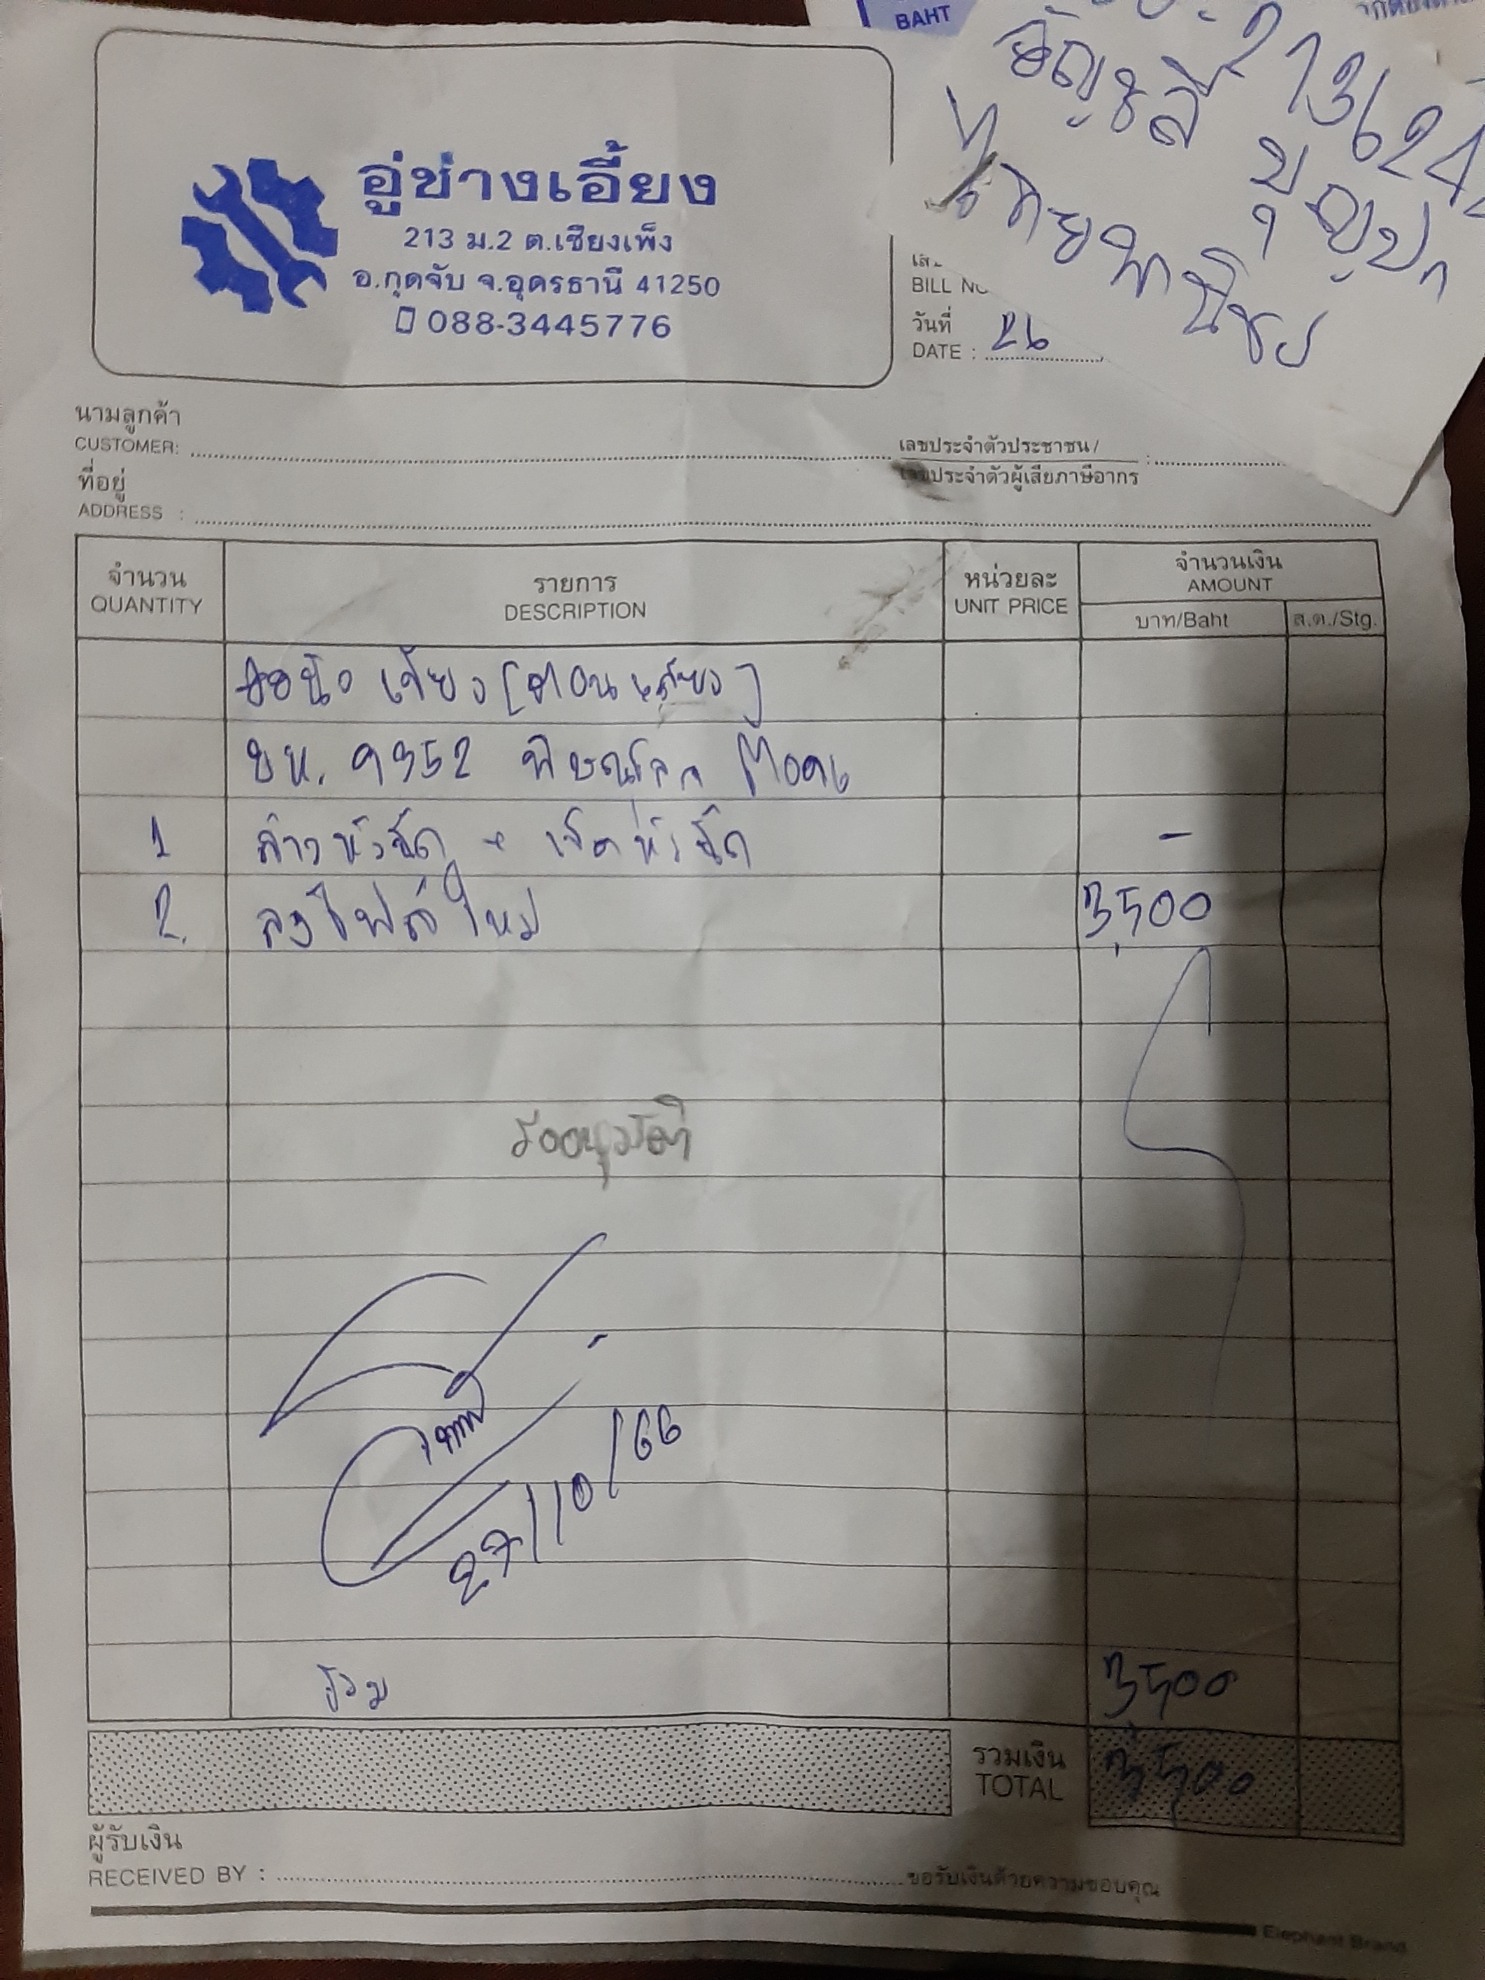 BAHT
273624
อัญชลี บุญปก
ไทยพาณิชย์
อู่ช่างเอี้ยง
213 ม.2 ต.เชียงเพ็ง
อ.กุดจับ จ.อุดรธานี 41250
088-3445776
BILL NO
วันที่
DATE : 26
นามลูกค้า
CUSTOMER:
เลขประจำตัวประชาชน /
เลขประจำตัวผู้เสียภาษีอากร
ที่อยู่
ADDRESS :
จำนวน
QUANTITY
รายการ
DESCRIPTION
หน่วยละ
UNIT PRICE
จำนวนเงิน
AMOUNT
บาท/Baht
ส.ต./Stg.
ยห. 9352 พิษณุโลก
1 ล้างหัวฉีด + เช็คหัวฉีด -
2. ลงไฟล์ใหม่ 3,500
รออนุมัติ
27/10/66
รวม 3,500
รวมเงิน
TOTAL
3,500
ผู้รับเงิน
RECEIVED BY :
ขอรับเงินด้วยความขอบคุณ
Elephant Brand